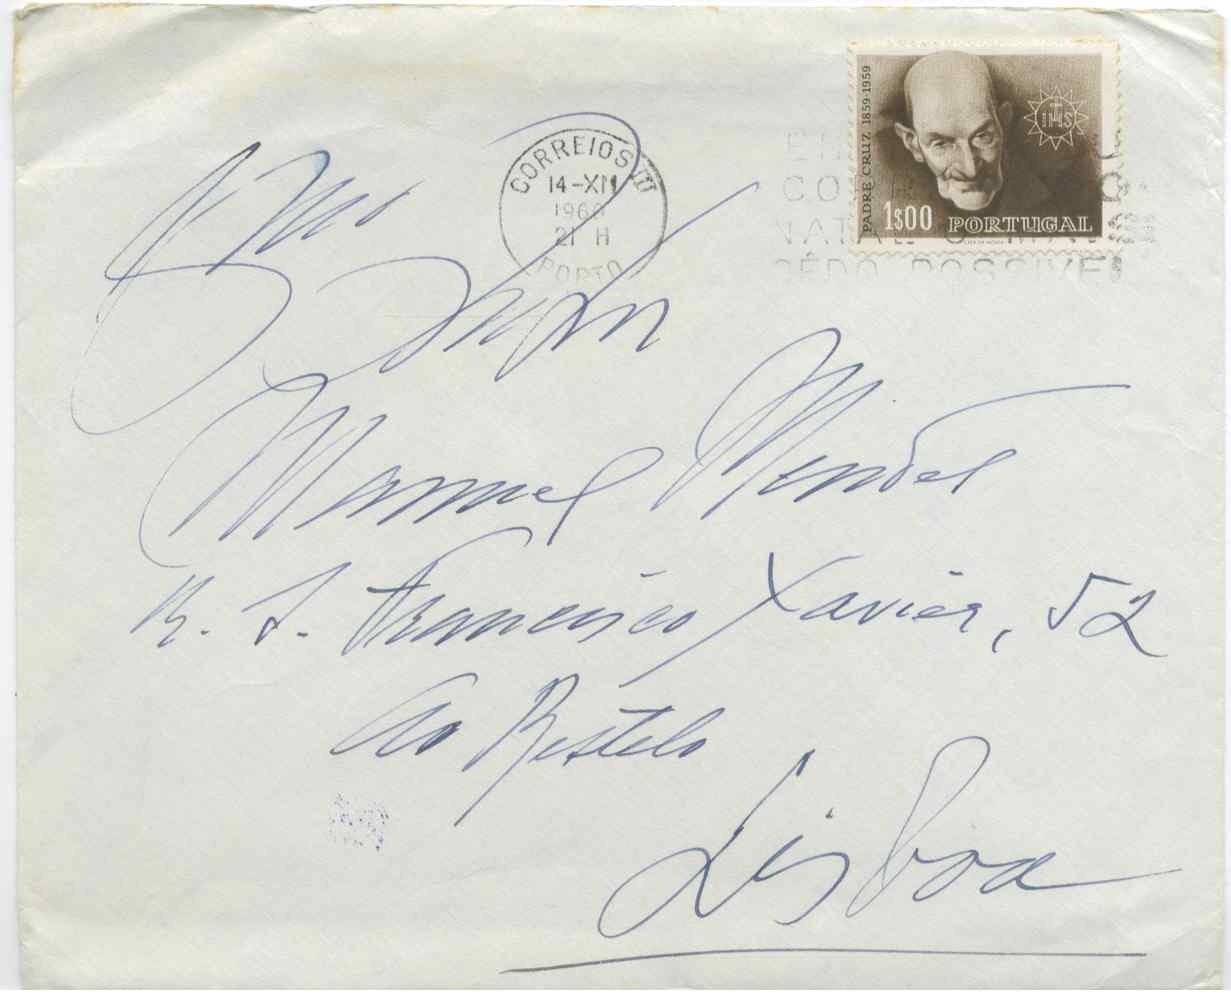 PADRE CRUZ 1859-1959
IHS
1$00 PORTUGAL
CORREIOS III
14-XII
1960
21 H
PORTO
NATAL O MAIS
CÊDO POSSIVEL
Manuel Mendes
R. S. Francisco Xavier, 52
Ao Restelo
Lisboa